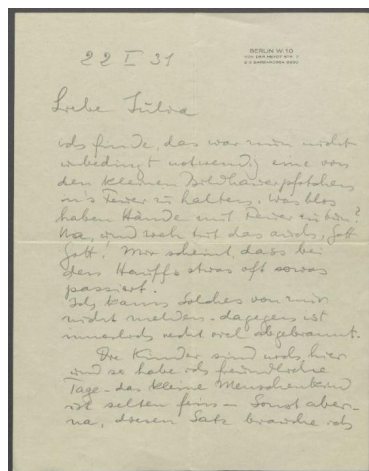 BERLIN W 10
VON DER HEYDT STR. 7
22 I 31
Liebe Sulva
ich finde, das war nun nicht
unbedingt notwendig eine von
den kleinen Bildhauerpfötchen
in's Feuer zu halten. was blos
haben Hände mit Feuer zu tun?
Na, und weh tut das auch, Gott
Gott! Mir scheint, dass bei
den Hauffs etwas oft sowas
passiert.
Ich kann Solches von mir
nicht melden - dagegen ist
innerlich recht viel abgebrannt.
Die Kinder sind noch hier
und so habe ich freundliche
Tage - das kleine Menschenkind
ist selten fein - Sonst aber -
na, diesen Satz brauche ich